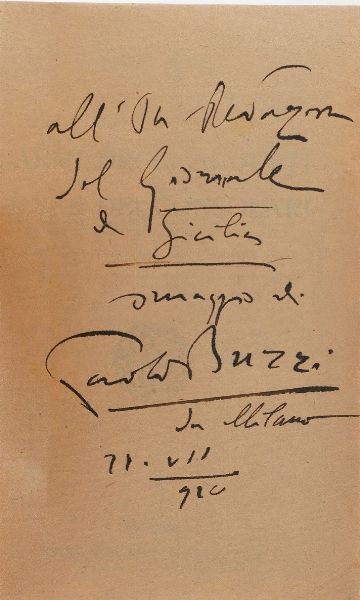 all'On Redazione
del Giornale
di Sicilia
omaggio di
Paolo Buzzi
da Milano
VII
920